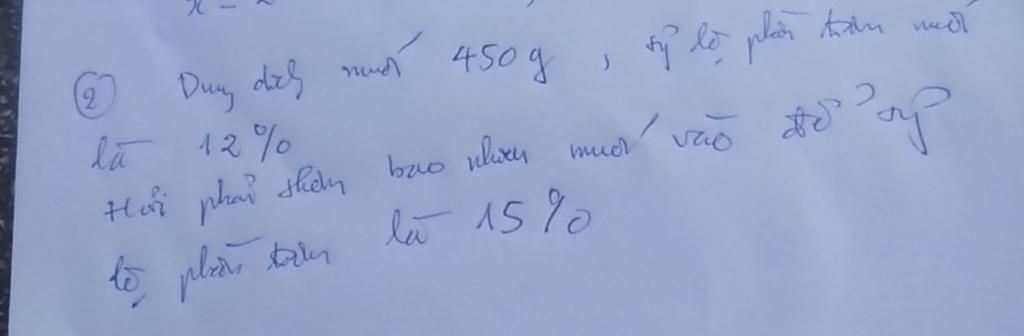 ② Dung dịch muối 450g, tỷ lệ phần trăm muối
là 12%
Hỏi phải thêm bao nhiêu muối vào để tỷ
lệ phần trăm là 15%